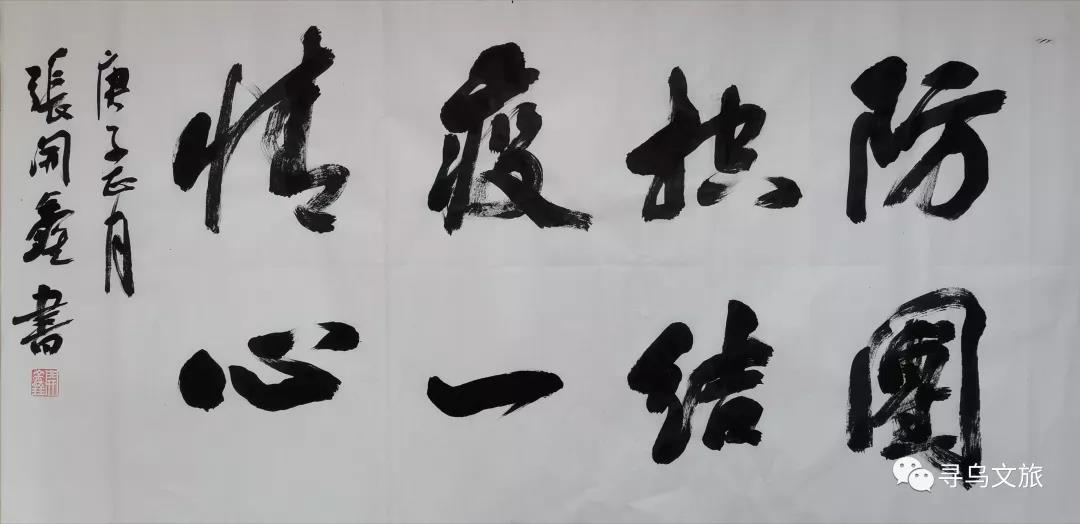 防控疫情
團結一心
庚子正月
張開鑫書
開鑫
寻乌文旅